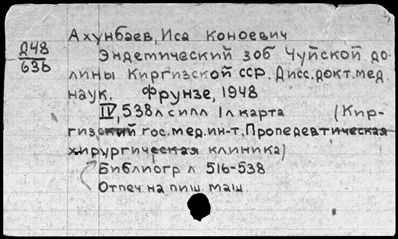 Ахунбаев, Иса Коноевич
Д48
63б
Эндемический зоб Чуйской до-
лины Киргизской ССР. Дисс. докт. мед.
наук. Фрунзе, 1948
IV, 538 л с илл 1 л карта (Кир-
гизский гос. мед. ин-т, Пропедевтическая
хирургическая клиника)
Библиогр л 516-538
Отпеч. на пиш. маш